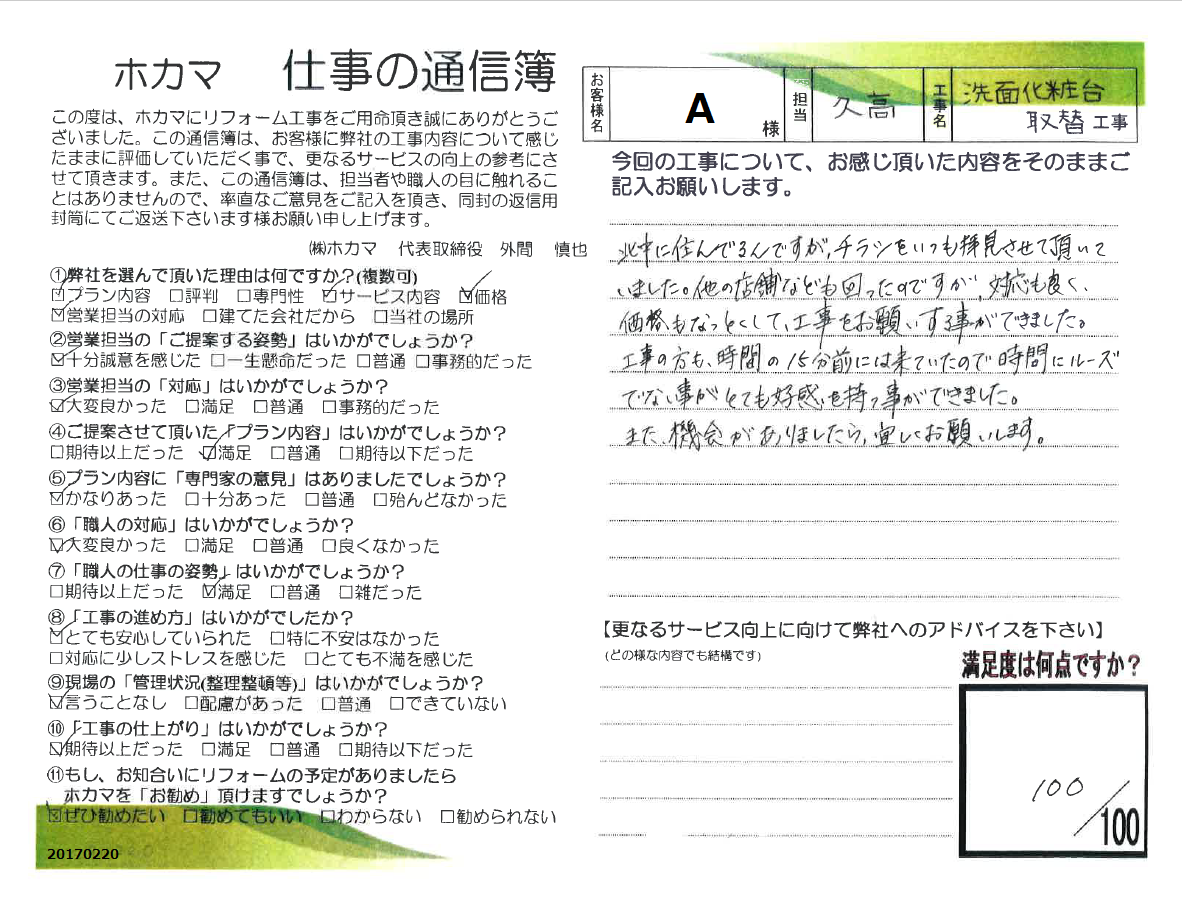 ホカマ 仕事の通信簿
この度は、ホカマにリフォーム工事をご用命頂き誠にありがとうご
ざいました。この通信簿は、お客様に弊社の工事内容について感じ
たままに評価していただく事で、更なるサービスの向上の参考にさ
せて頂きます。また、この通信簿は、担当者や職人の目に触れるこ
とはありませんので、率直なご意見をご記入を頂き、同封の返信用
封筒にてご返送下さいます様お願い申し上げます。
㈱ホカマ 代表取締役 外間 慎也
①弊社を選んで頂いた理由は何ですか？(複数可)
☑プラン内容 □評判 □専門性 ☑サービス内容 ☑価格
☑営業担当の対応 □建てた会社だから □当社の場所
②営業担当の「ご提案する姿勢」はいかがでしょうか？
☑十分誠意を感じた □一生懸命だった □普通 □事務的だった
③営業担当の「対応」はいかがでしょうか？
☑大変良かった □満足 □普通 □事務的だった
④ご提案させて頂いた「プラン内容」はいかがでしょうか？
□期待以上だった ☑満足 □普通 □期待以下だった
⑤プラン内容に「専門家の意見」はありましたでしょうか？
☑かなりあった □十分あった □普通 □殆んどなかった
⑥「職人の対応」はいかがでしょうか？
☑大変良かった □満足 □普通 □良くなかった
⑦「職人の仕事の姿勢」はいかがでしょうか？
□期待以上だった ☑満足 □普通 □雑だった
⑧「工事の進め方」はいかがでしたか？
☑とても安心していられた □特に不安はなかった
□対応に少しストレスを感じた □とても不満を感じた
⑨現場の「管理状況(整理整頓等)」はいかがでしょうか？
☑言うことなし □配慮があった □普通 □できていない
⑩「工事の仕上がり」はいかがでしょうか？
☑期待以上だった □満足 □普通 □期待以下だった
⑪もし、お知合いにリフォームの予定がありましたら
ホカマを「お勧め」頂けますでしょうか？
☑ぜひ勧めたい □勧めてもいい □わからない □勧められない
20170220
お客様名 A 様 担当 久高 工事名 洗面化粧台
取替工事
今回の工事について、お感じ頂いた内容をそのままご
記入お願いします。
北中に住んでるんですが、チラシをいつも拝見させて頂いて
いました。他の店舗なども回ったのですが、対応も良く、
価格もなっとくして、工事をお願いする事ができました。
工事の方も、時間の15分前には来ていたので時間にルーズ
でない事がとても好感を持つ事ができました。
また、機会がありましたら、宜しくお願いします。
【更なるサービス向上に向けて弊社へのアドバイスを下さい】
(どの様な内容でも結構です)
満足度は何点ですか？
100/100